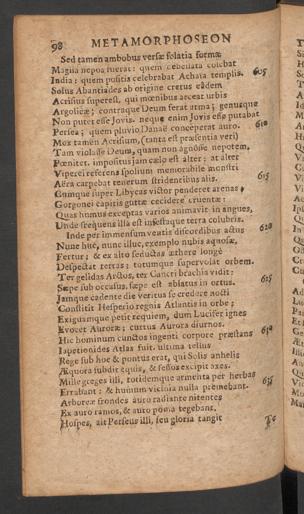 98 METAMORPHOSEON
Sed tamen ambobus versæ solatia formæ
Magna nepos fuerat: quem debellata colebat
India: quem positis celebrabat Achaia templis. 605
Solus Abantiades ab origine cretus eâdem
Acrisius superest, qui mœnibus arceat urbis
Argolicæ; contraque Deum ferat arma; genusque
Non putet esse Jovis. neque enim Jovis esse putabat
Persea; quem pluvio Danaë conceperat auro. 610
Mox tamen Acrisium, (tanta est præsentia veri)
Tam violasse Deum, quam non agnôsse nepotem,
Pœnitet. impositus jam cælo est alter: at alter
Viperei referens spolium memorabile monstri
Aëra carpebat tenerum stridentibus alis. 615
Cumque super Libycas victor penderet arenas,
Gorgonei capitis guttæ cecidere cruentæ:
Quas humus exceptas varios animavit in angues,
Unde frequens illa est infestaque terra colubris.
Inde per immensum ventis discordibus actus 620
Nunc huc, nunc illuc, exemplo nubis aquosæ,
Fertur; & ex alto seductas æthere longè
Despectat terras: totumque supervolat orbem.
Ter gelidas Arctos, ter Cancri brachia vidit:
Sæpe sub occasus, sæpe est ablatus in ortus. 625
Jamque cadente die veritus se credere nocti
Constitit Hesperio regnis Atlantis in orbe;
Exiguamque petit requiem, dum Lucifer ignes
Evocet Auroræ; currus Aurora diurnos.
Hic hominum cunctos ingenti corpore præstans 630
Iapetionides Atlas fuit. ultima tellus
Rege sub hoc & pontus erat, qui Solis anhelis
Æquora subdit equis, & fessos excipit axes.
Mille greges illi, totidemque armenta per herbas
Errabant: & humum vicinia nulla premebant. 635
Arboreæ frondes auro radiante nitentes
Ex auro ramos, & auro poma tegebant.
Hospes, ait Perseus illi, seu gloria tangit